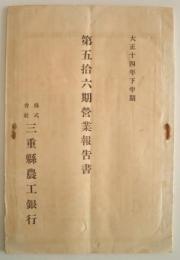 大正十四年下半期
第五拾六期營業報告書
株式會社
三重縣農工銀行